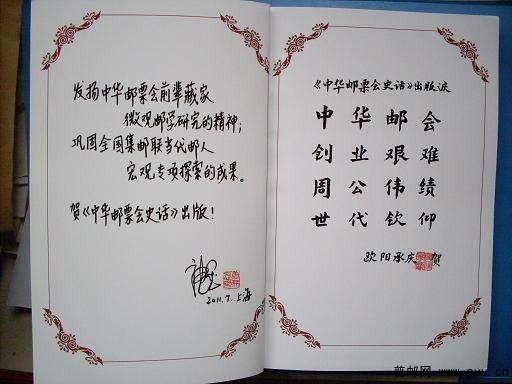 发扬中华邮票会前辈藏家
微观邮学研究的精神；
巩固全国集邮联当代邮人
宏观专项探索的成果。
贺《中华邮票会史话》出版！
2011.7.上海
《中华邮票会史话》出版志
中华邮会
创业艰难
周公伟绩
世代钦仰
欧阳承庆 贺
普邮网